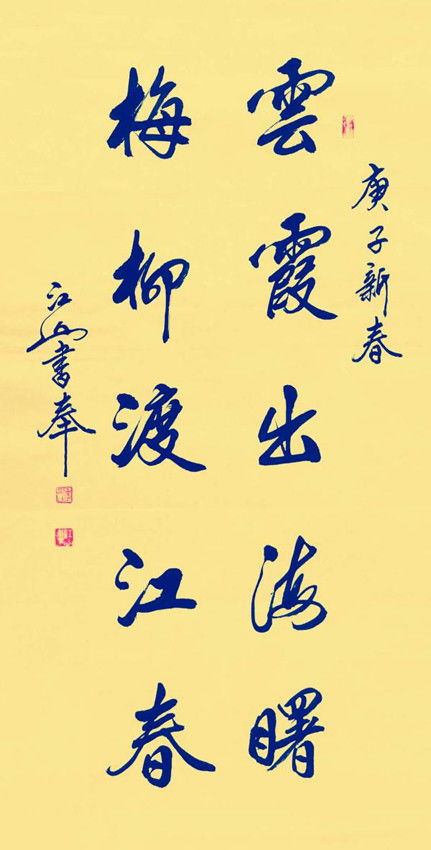 庚子新春
雲霞出海曙
梅柳渡江春
江山書奉